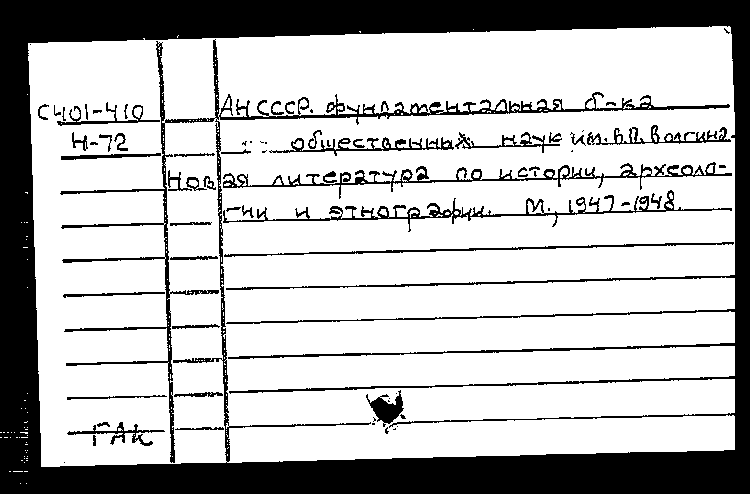 С401-410 АН СССР. Фундаментальная б-ка
Н-72 общественных наук им. В.П. Волгина.
Новая литература по истории, археоло-
гии и этнографии. М., 1947-1948.
ГАК